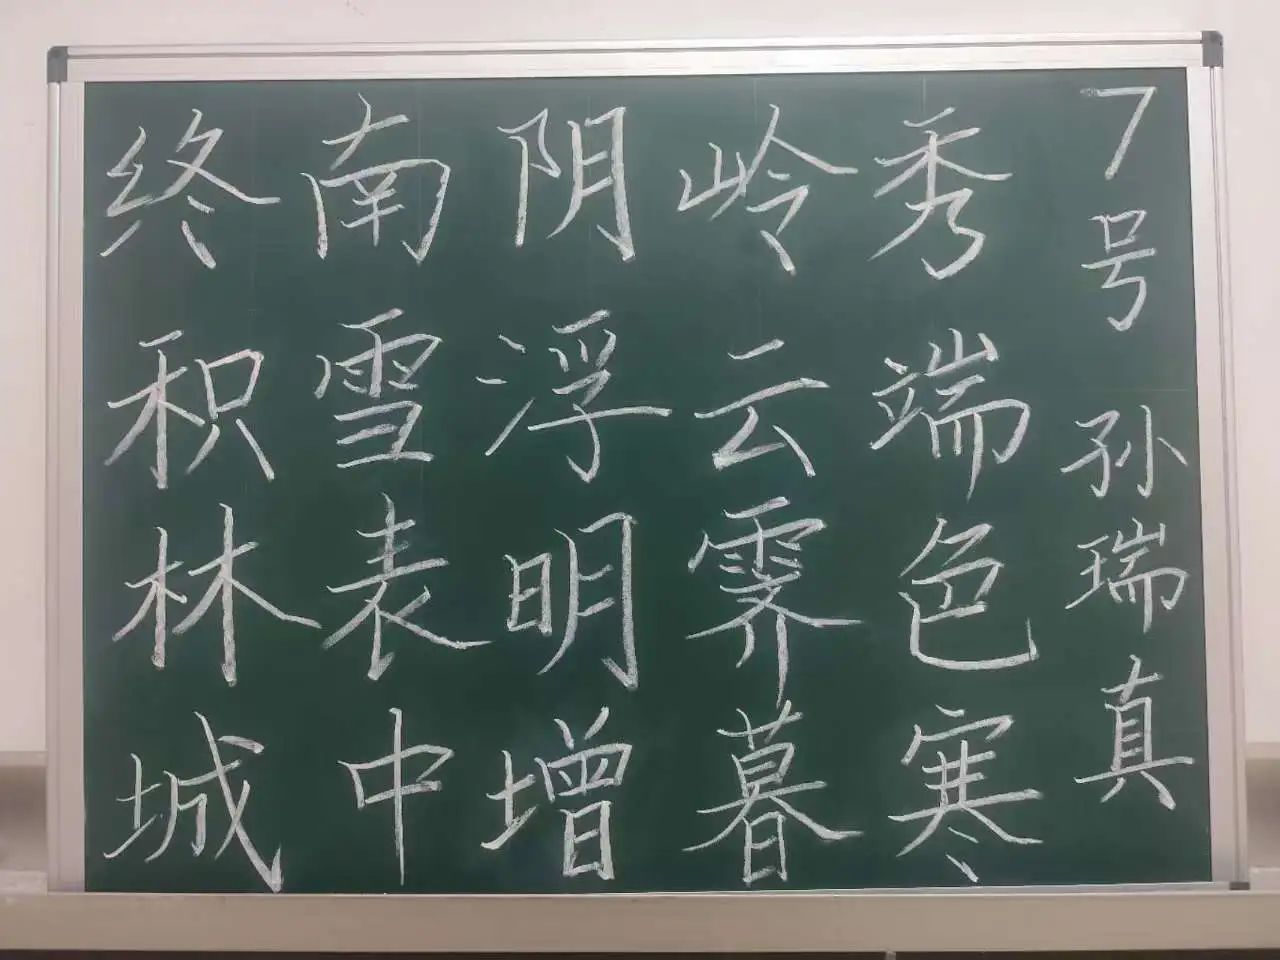 终南阴岭秀
积雪浮云端
林表明霁色
城中增暮寒
7号
孙瑞真